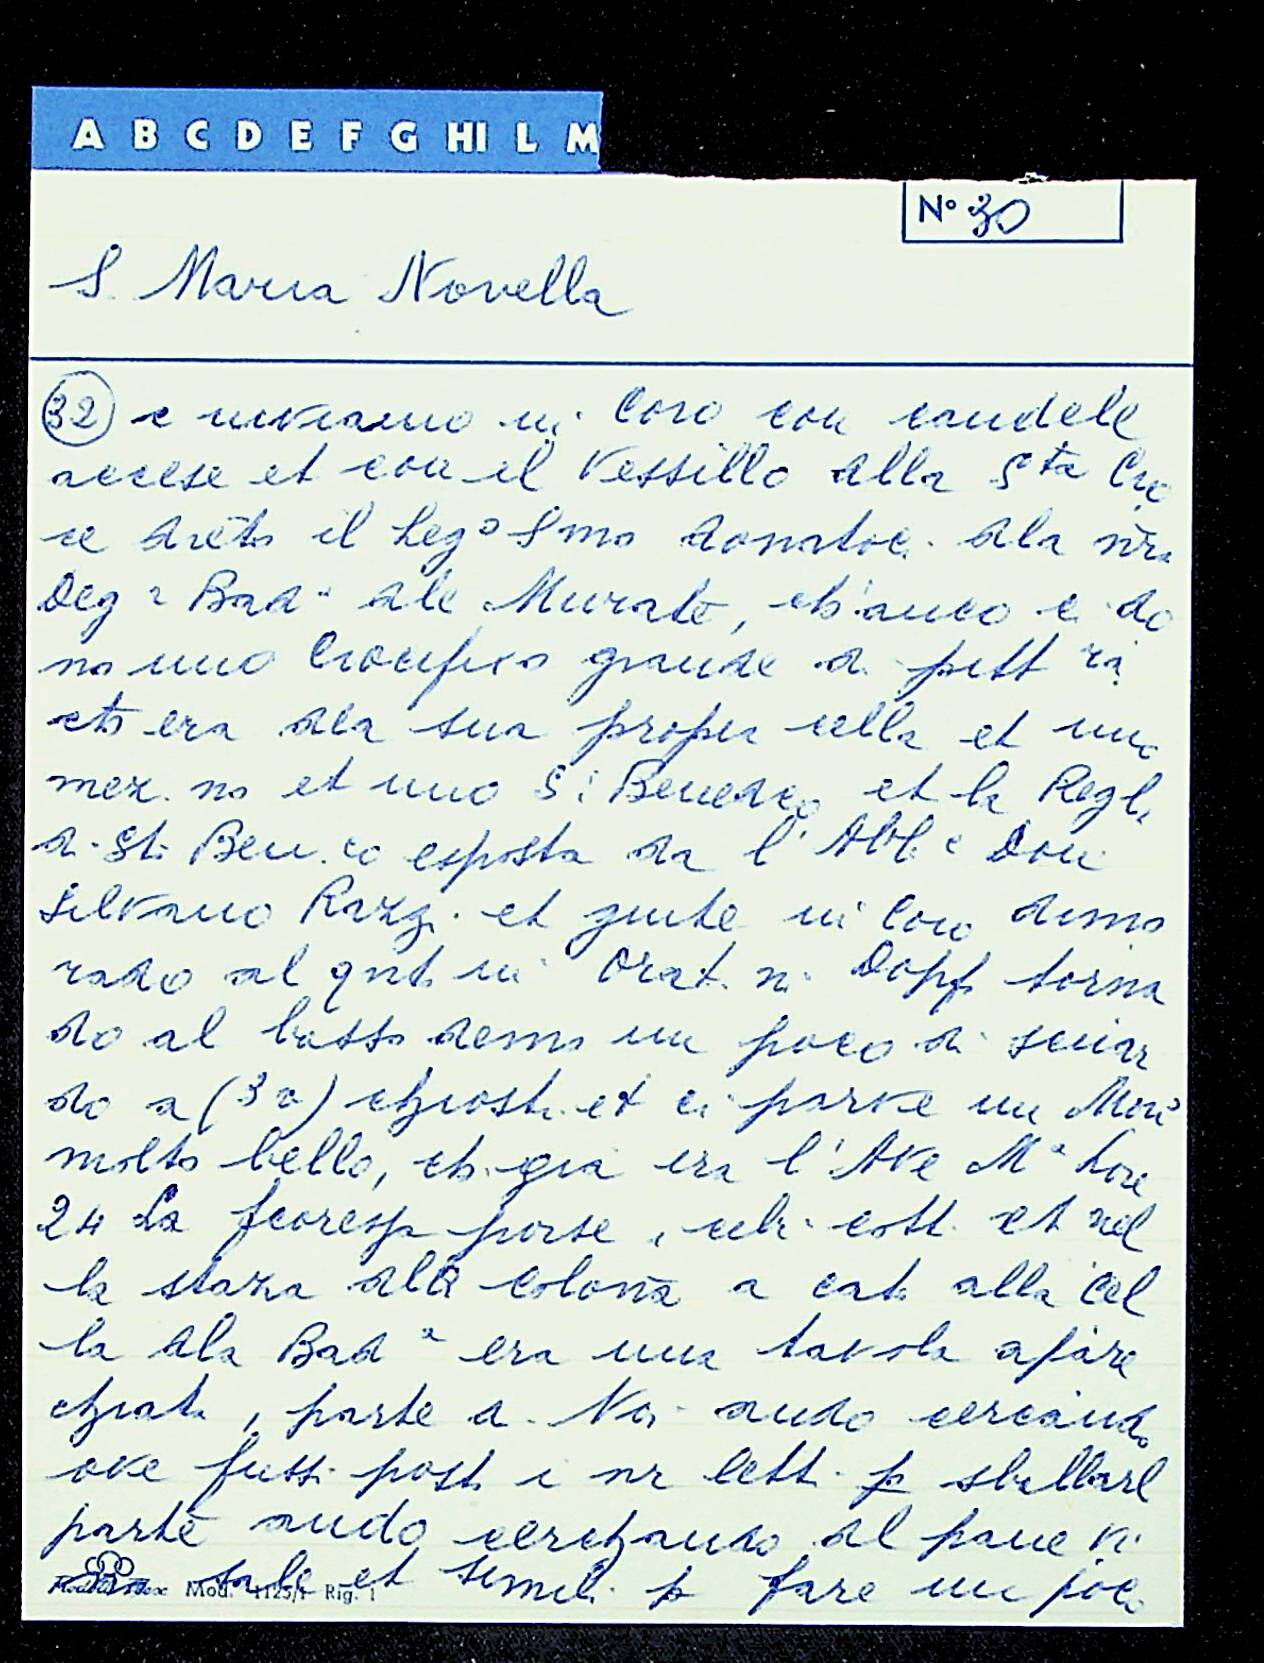 A B C D E F G HI L M
N° 30
S. Maria Novella
32 e in Coro con candele
accese et con il Vessillo alla Sta Cro
ce dreto il Lego Smo donatoci dla nra
Deg a Bad a dle Murate, ch'anco ci do
no uno Crocifisso grande di pitt ra
ch era dla sua propria cella et una
mez. na et uno S: Bened.co et la Regla
di St. Ben.co esposta da l'Abb e Don
Silvano Razzi et giunte in Coro dimo
rado al qnt. in Orat. ni Dopp torna
do al basso demo un poco di
do a (30) chiostri et ci parve un Mon
molto bello, ch. gia era l'Ave Ma hore
24 La porse, celi cott. et nel
la staza dlla Colona a cato alla Cel
la dla Bad a era una tavola apare
chiata, parte di Noi ando cercando
ove fussi posti i nr letti p sballarl
parte ando cerchando dl pane vi
sale et simili p fare un poco
Mod. 1125/1 Rig. 1